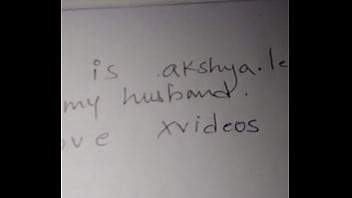 is akshya.le
my husband.
ve xvideos